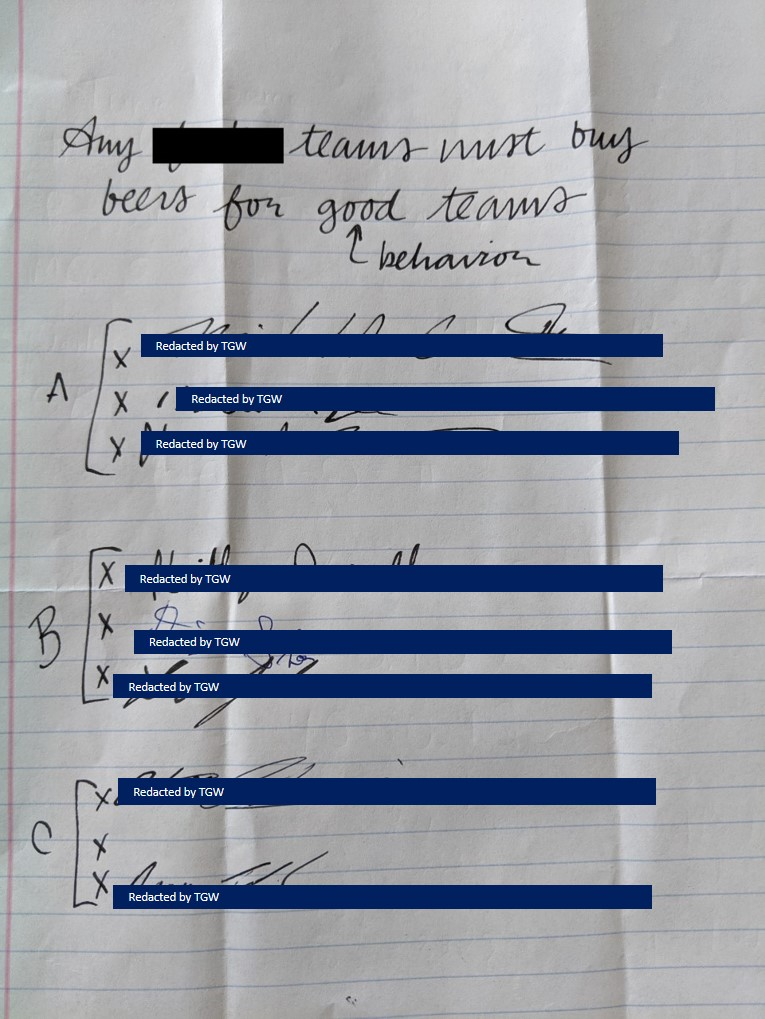 Any teams must buy
beers for good teams
behavior
A
X
Redacted by TGW
X
Redacted by TGW
X
Redacted by TGW
B
X
Redacted by TGW
X
Redacted by TGW
X
Redacted by TGW
C
X
Redacted by TGW
X
X
Redacted by TGW